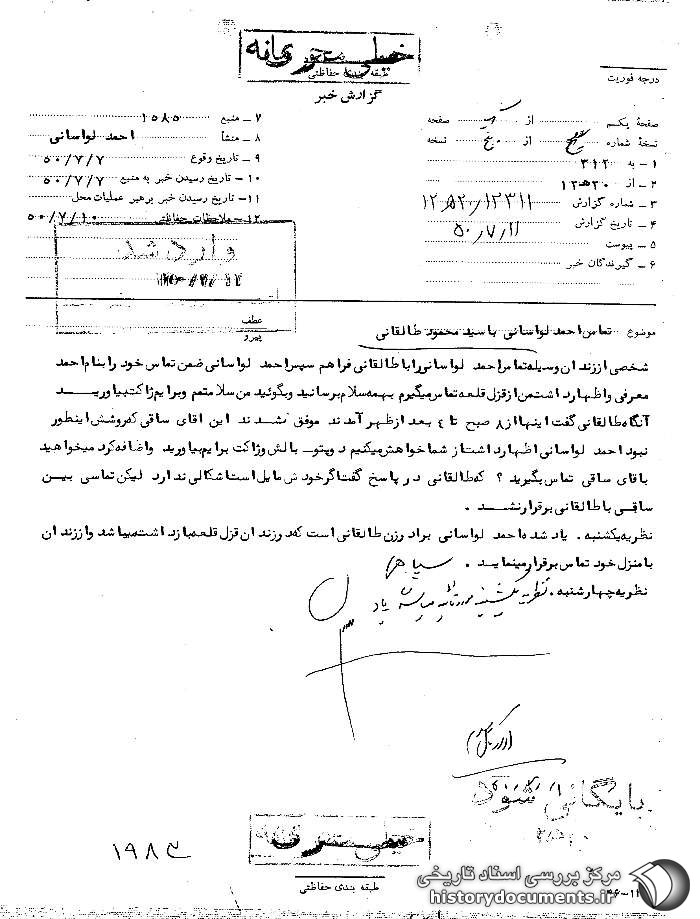 خیلی محرمانه
طبقه بندی حفاظتی
گزارش خبر
درجه فوریت
صفحهٔ یکم از یک صفحه
نسخهٔ شماره از نسخه
۱ - به ۳۱۲
۲ - از ۲۰ﻫ۱۲
۳ - شماره گزارش ۱۲۳۱۱/۲۰ﻫ۱۲
۴ - تاریخ گزارش ۵۰/۷/۱۱
۵ - پیوست
۶ - گیرندگان خبر
۷ - منبع ۱۵۸۵
۸ - منشأ احمد لواسانی
۹ - تاریخ وقوع ۵۰/۷/۷
۱۰ - تاریخ رسیدن خبر به منبع ۵۰/۷/۷
۱۱ - تاریخ رسیدن خبر برهبر عملیات محل
۱۲ - ملاحظات حفاظتی ۵۰/۷/۱۰
وارد شد
عطف
پیرو
موضوع تماس احمد لواسانی با سید محمود طالقانی
شخصی از زندان وسیله تماس احمد لواسانی را با طالقانی فراهم سپس احمد لواسانی ضمن تماس خود را بنام احمد
معرفی و اظهار داشت من از قزل قلعه تماس میگیرم بهمه سلام برسانید و بگوئید من سلامتم و برایم ژاکت بیاورید
آنگاه طالقانی گفت اینها از ۸ صبح تا ٤ بعد از ظهر آمدند موفق نشدند این اقای ساقی که روشش اینطور
نبود احمد لواسانی اظهار داشت از شما خواهش میکنم پتو بالش و ژاکت برایم بیاورید و اضافه کرد میخواهید
با قای ساقی تماس بگیرید ؟ که طالقانی در پاسخ گفت اگر خودش مایل است اشکالی ندارد لیکن تماسی بین
ساقی با طالقانی برقرار نشد .
نظریه یکشنبه . یاد شده احمد لواسانی برادر زن طالقانی است که در زندان قزل قلعه بازداشت میباشد و از زندان
با منزل خود تماس برقرار مینماید .
نظریه چهارشنبه . نظریه یکشنبه مورد تائید میباشد
بایگانی شود
خیلی محرمانه
طبقه بندی حفاظتی
۱۹۸۳
مرکز بررسی اسناد تاریخی
historydocuments.ir